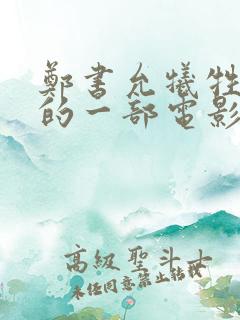 鄭書允犧牲
的一部電影
高級聖斗士
未任同意禁止転載